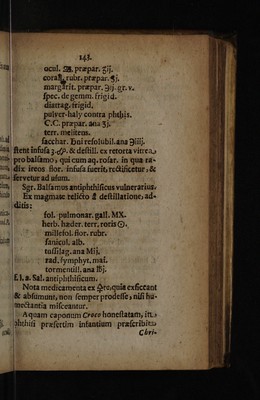 143.
ocul. ♋. præpar. ʒij.
corall. rubr. præpar. ʒj.
margarit. præpar. ℈ij. gr. v.
spec. de gemm. frigid.
diatrag. frigid.
pulver-haly contra phthis.
C.C. præpar. ana ʒj.
terr. melitens.
sacchar. ♄ni resolubil. ana ℈iiij.
stent infusa 3. & destill. ex retorta vitrea,
pro balsamo, qui cum aq. rosar. in qua ra-
dix ireos flor. infusa fuerit, rectificetur, &
servetur ad usum.
Sgr. Balsamus antiphthisicus vulnerarius.
Ex magmate relicto à destillatione, ad-
ditis:
fol. pulmonar. gall. MX.
herb. hæder. terr. rotis ☉.
millefol. flor. rubr.
sanicul. alb.
tussilag. ana Miij.
rad. symphyt. maj.
tormentill. ana ℔j.
f. l. a. Sal. antiphthisicum.
Nota medicamenta ex ♀re, quia exsiccant
& absumunt, non semper prodesse, nisi hu-
mectantia misceantur.
Aquam caponum Croco honestatam, in
phthisi præsertim infantium præscribit
Chri-